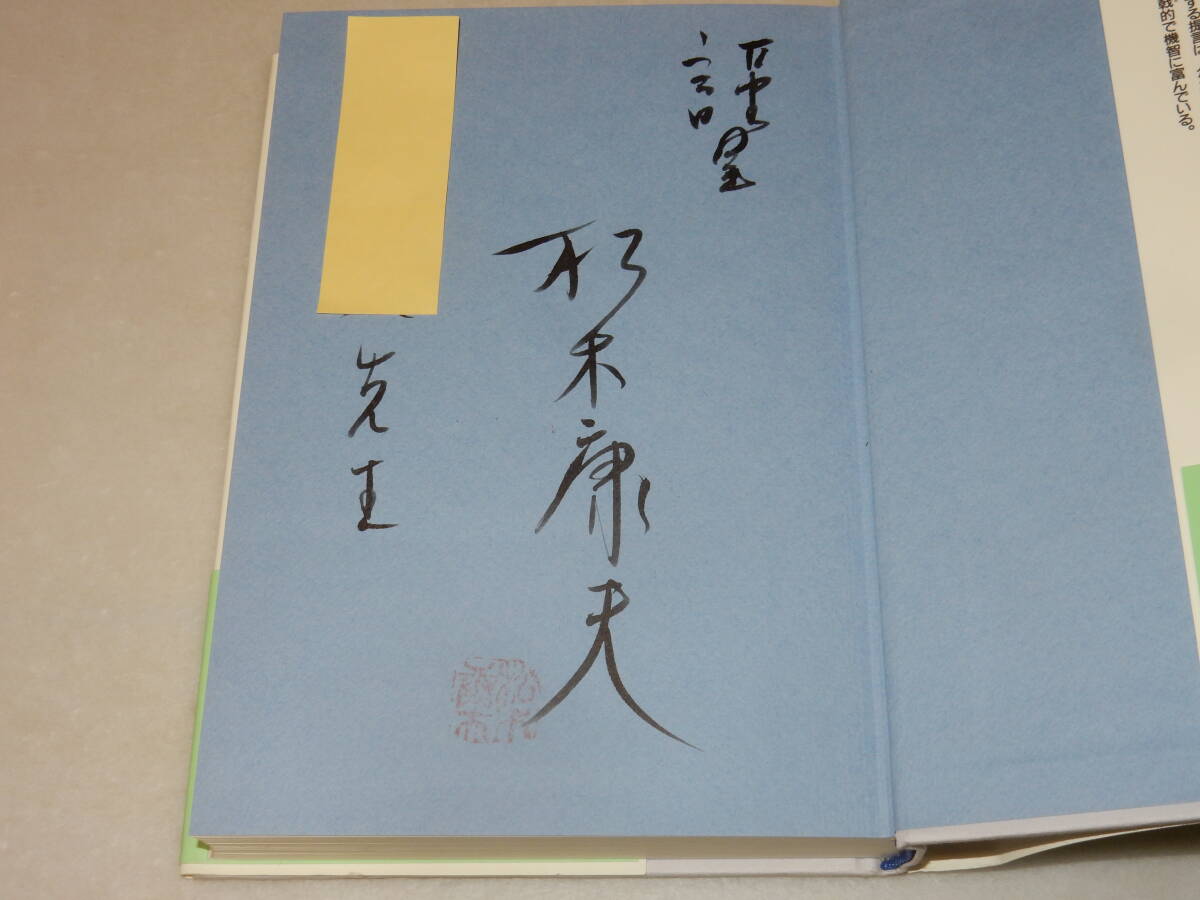 する提言は
戟的で機智に富んでいる。
謹呈
松木康夫
先生